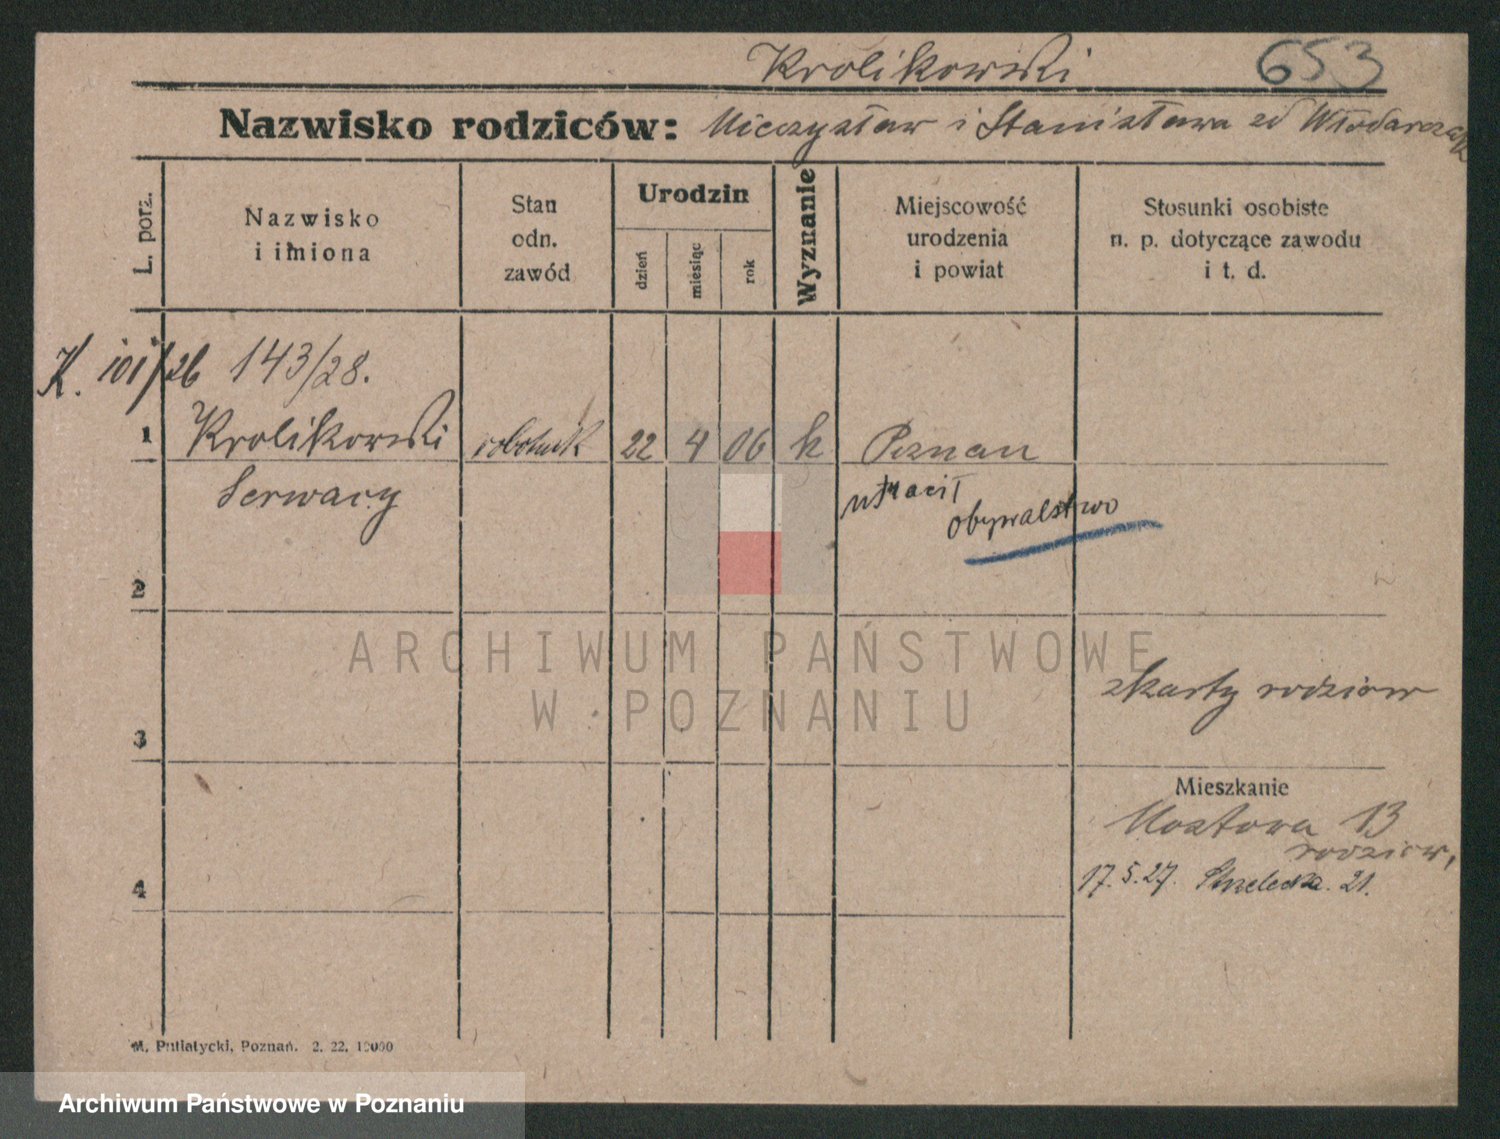 Krolikowski 653
Nazwisko rodziców: Mieczysław i Stanisława zd Włodarczak
L. porz.
Nazwisko
i imiona
Stan
odn.
zawód
Urodzin
dzień
miesiąc
rok
Wyznanie
Miejscowość
urodzenia
i powiat
Stosunki osobiste
n. p. dotyczące zawodu
i t. d.
K. 101/26 143/28.
1 Krolikowski robotnik 22 4 06 k Poznan
Serwacy
utracił
obywalstwo
2
ARCHIWUM PAŃSTWOWE
W POZNANIU
z karty rodziców
3
Mieszkanie
Mostowa 13
rodziców,
17.5.27. Strzelecka. 21.
4
M. Putiatycki, Poznań. 2. 22. 10000
Archiwum Państwowe w Poznaniu